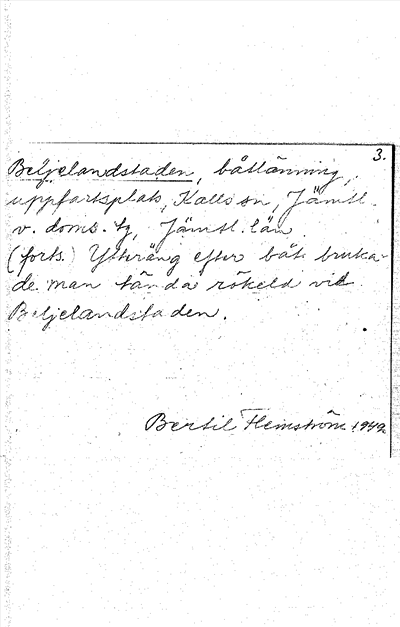 3.
Beljelandstaden, båtlänning,
uppfartsplats, Kalls sn, Jämtl.
v. doms. tg, Jämtl. län
(forts.) efter båt bruka-
de man tända rökeld vid
Beljelandstaden.
Bertil Flemström 1942